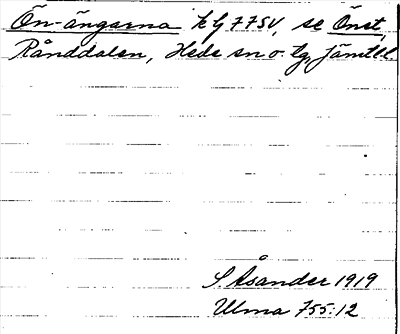 Ön-ängarna k G 77SV, se Önst,
Rånddalen, Hede sn o. tg, Jämtl.l.
S Åsander 1919
Ulma 755:12